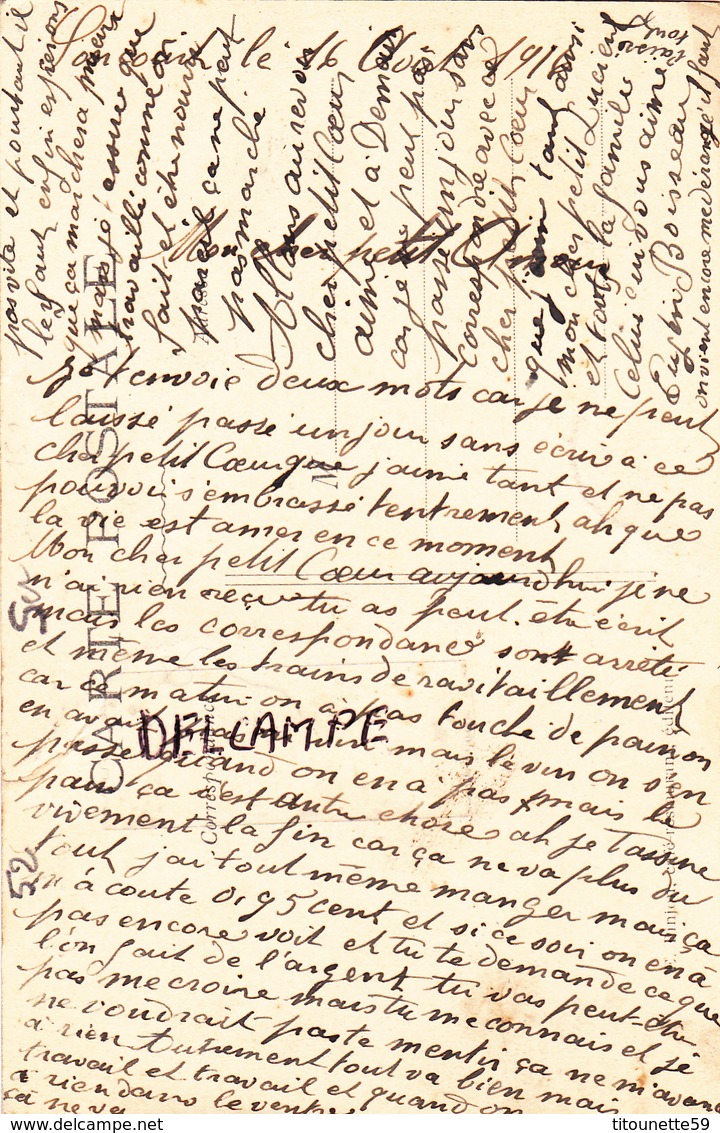 le 16 Août 1916
Mon cher petit Coeur
Je t'envoie deux mots car je ne peut
laissé passé un jour sans écrire à ce
cher petit Coeur que j'aime tant et ne pas
pouvoir s'embrassé tentrement ah que
la vie est amer en ce moment
Mon cher petit Coeur aujourdhui je ne
n'ai rien reçu tu as peut-être écrit
mais les correspondance sont arrêté
et même les trains de ravitaillement
car ce matin on à pas touché de pain on
en avait mais le vin on s'en
passe quand on en à pas mais le
pain ça c'est autre chose ah je t'assure
vivement la fin car ça ne va plus du
tout j'ai tout même manger mais ça
m'à coute 0,95 cent et si ce soir on en à
pas encore voit et tu te demande ce que
l'on fait de l'argent tu vas peut-être
pas me croire mais tu me connais et je
ne voudrait pas te mentir ça ne m'avance
à rien Autrement tout va bien mais
travail et travail et quand on
à rien dans le ventre
ça ne va
pas vite et pourtant il
le faut enfin espérons
que ça marchera mieux
mais je t'assure que
travaillé comme on
fait et être nourri
pareil ça ne peut
pas marché
Allons au revoir
cher petit Coeur
aimé et à Demain
car je ne peut pas
passé un jour sans
correspondre avec ce
cher petit Coeur
que j'aim tant ainsi
mon cher petit Lucien
et toute la famille
Celui qui vous aime
Eugèn Boisseau
on vient encore me dérangé il faut
CARTE POSTALE
Correspondance
M
DELCAMPE
52
titounette59